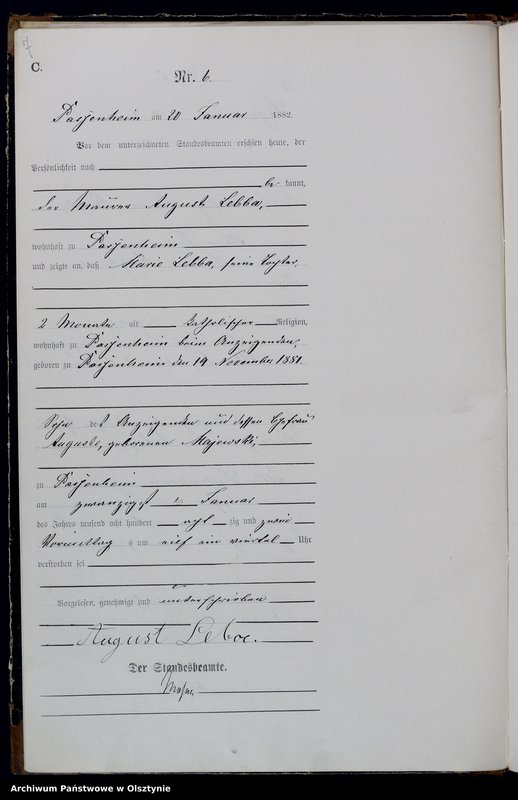 7
C.
Nr. 6.
Passenheim am 20 Januar 1882.
Vor dem unterzeichneten Standesbeamten erschien heute, der
Persönlichkeit nach
be kannt,
der Maurer August Lebba,
wohnhaft zu Passenheim
und zeigte an, daß Marie Lebba, seine Tochter,
2 Monate alt katholischer Religion,
wohnhaft zu Passenheim beim Anzeigenden,
geboren zu Passenheim den 19 November 1881.
des Anzeigenden und dessen Ehefrau
Auguste, geborenen Majewski,
zu Passenheim
am zwanzigst en Januar
des Jahres tausend acht hundert acht zig und zwei
Vormittag s um eilf ein viertel Uhr
verstorben sei
Vorgelesen, genehmigt und unterschrieben
August
Der Standesbeamte.
Archiwum Państwowe w Olsztynie